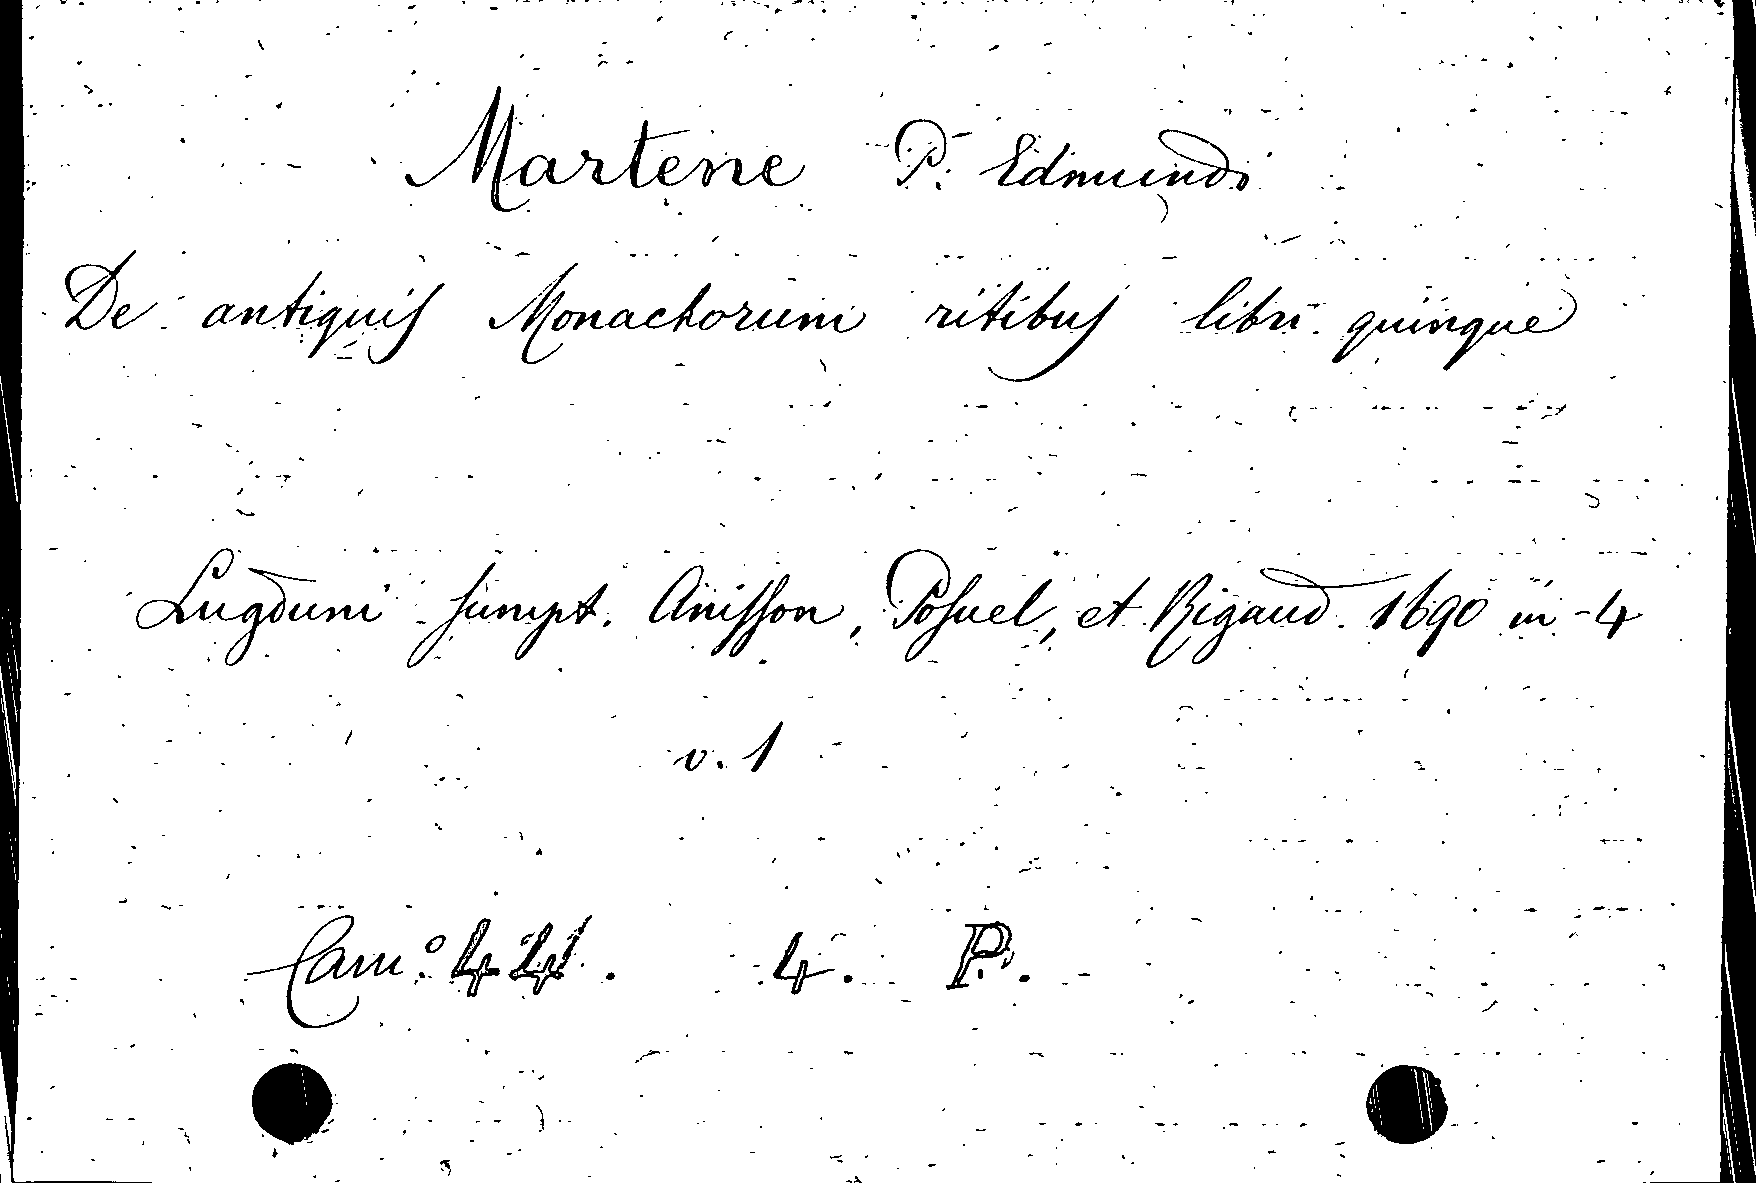 Martene P. Edmundi
De antiquis Monachorum ritibus libri quinque
Lugduni sumpt. Anisson, Posuel, et Rigaud. 1690 in-4
v. 1
Cam.º 441. 4. P.